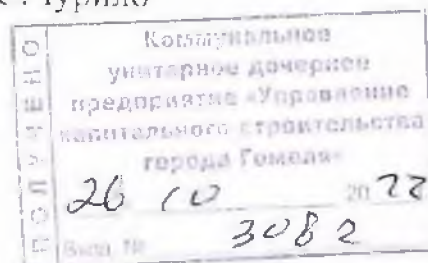 Чурило
ПОЛУЧЕНО
Коммунальное
унитарное дочернее
предприятие «Управление
капитального строительства
города Гомеля»
26 10 2022
Вход. № 3082